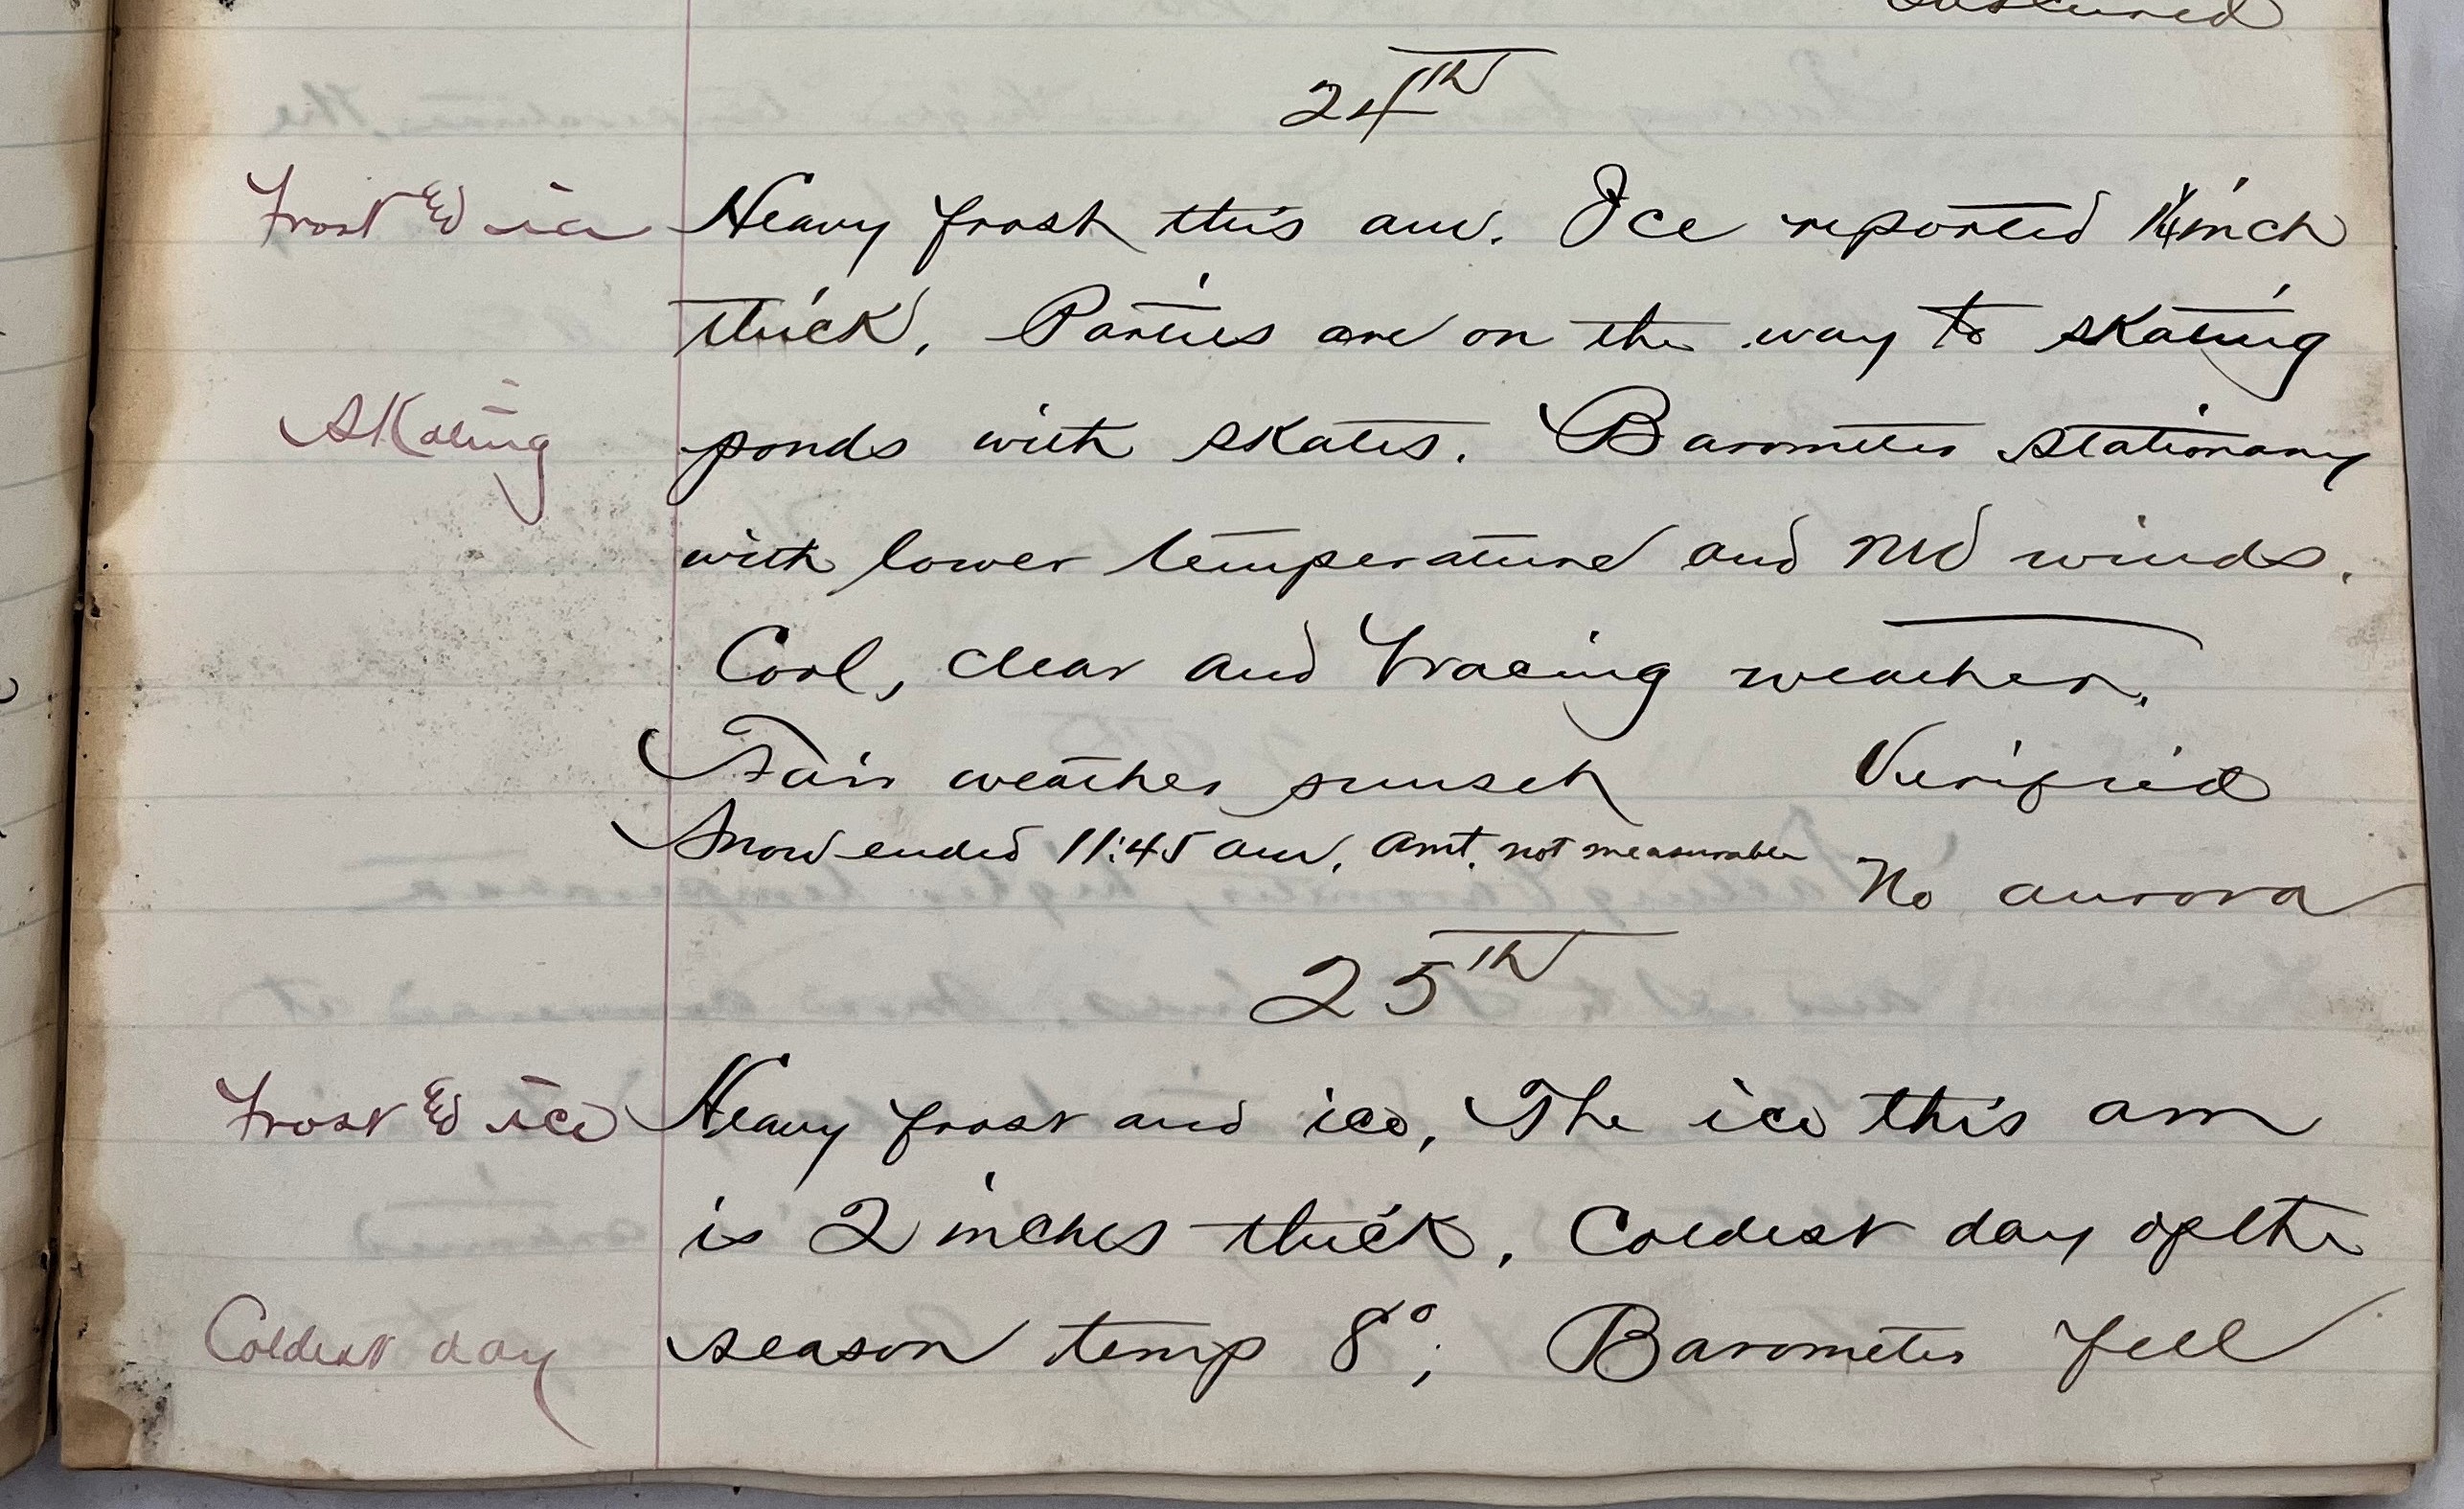 24th
Frost & ice Heavy frost this am. Ice reported inch
thick. Parties are on the way to skating
Skating ponds with skates. Barometer stationary
with lower temperature and NW winds.
Cool, clear and bracing weather.
Fair weather sunset Verified
Snow ended 11:45 am. Amt. not measurable
No aurora
25th
Frost & ice Heavy frost and ice, The ice this am
is 2 inches thick. Coldest day of the
Coldest day season temp 8°; Barometer fell